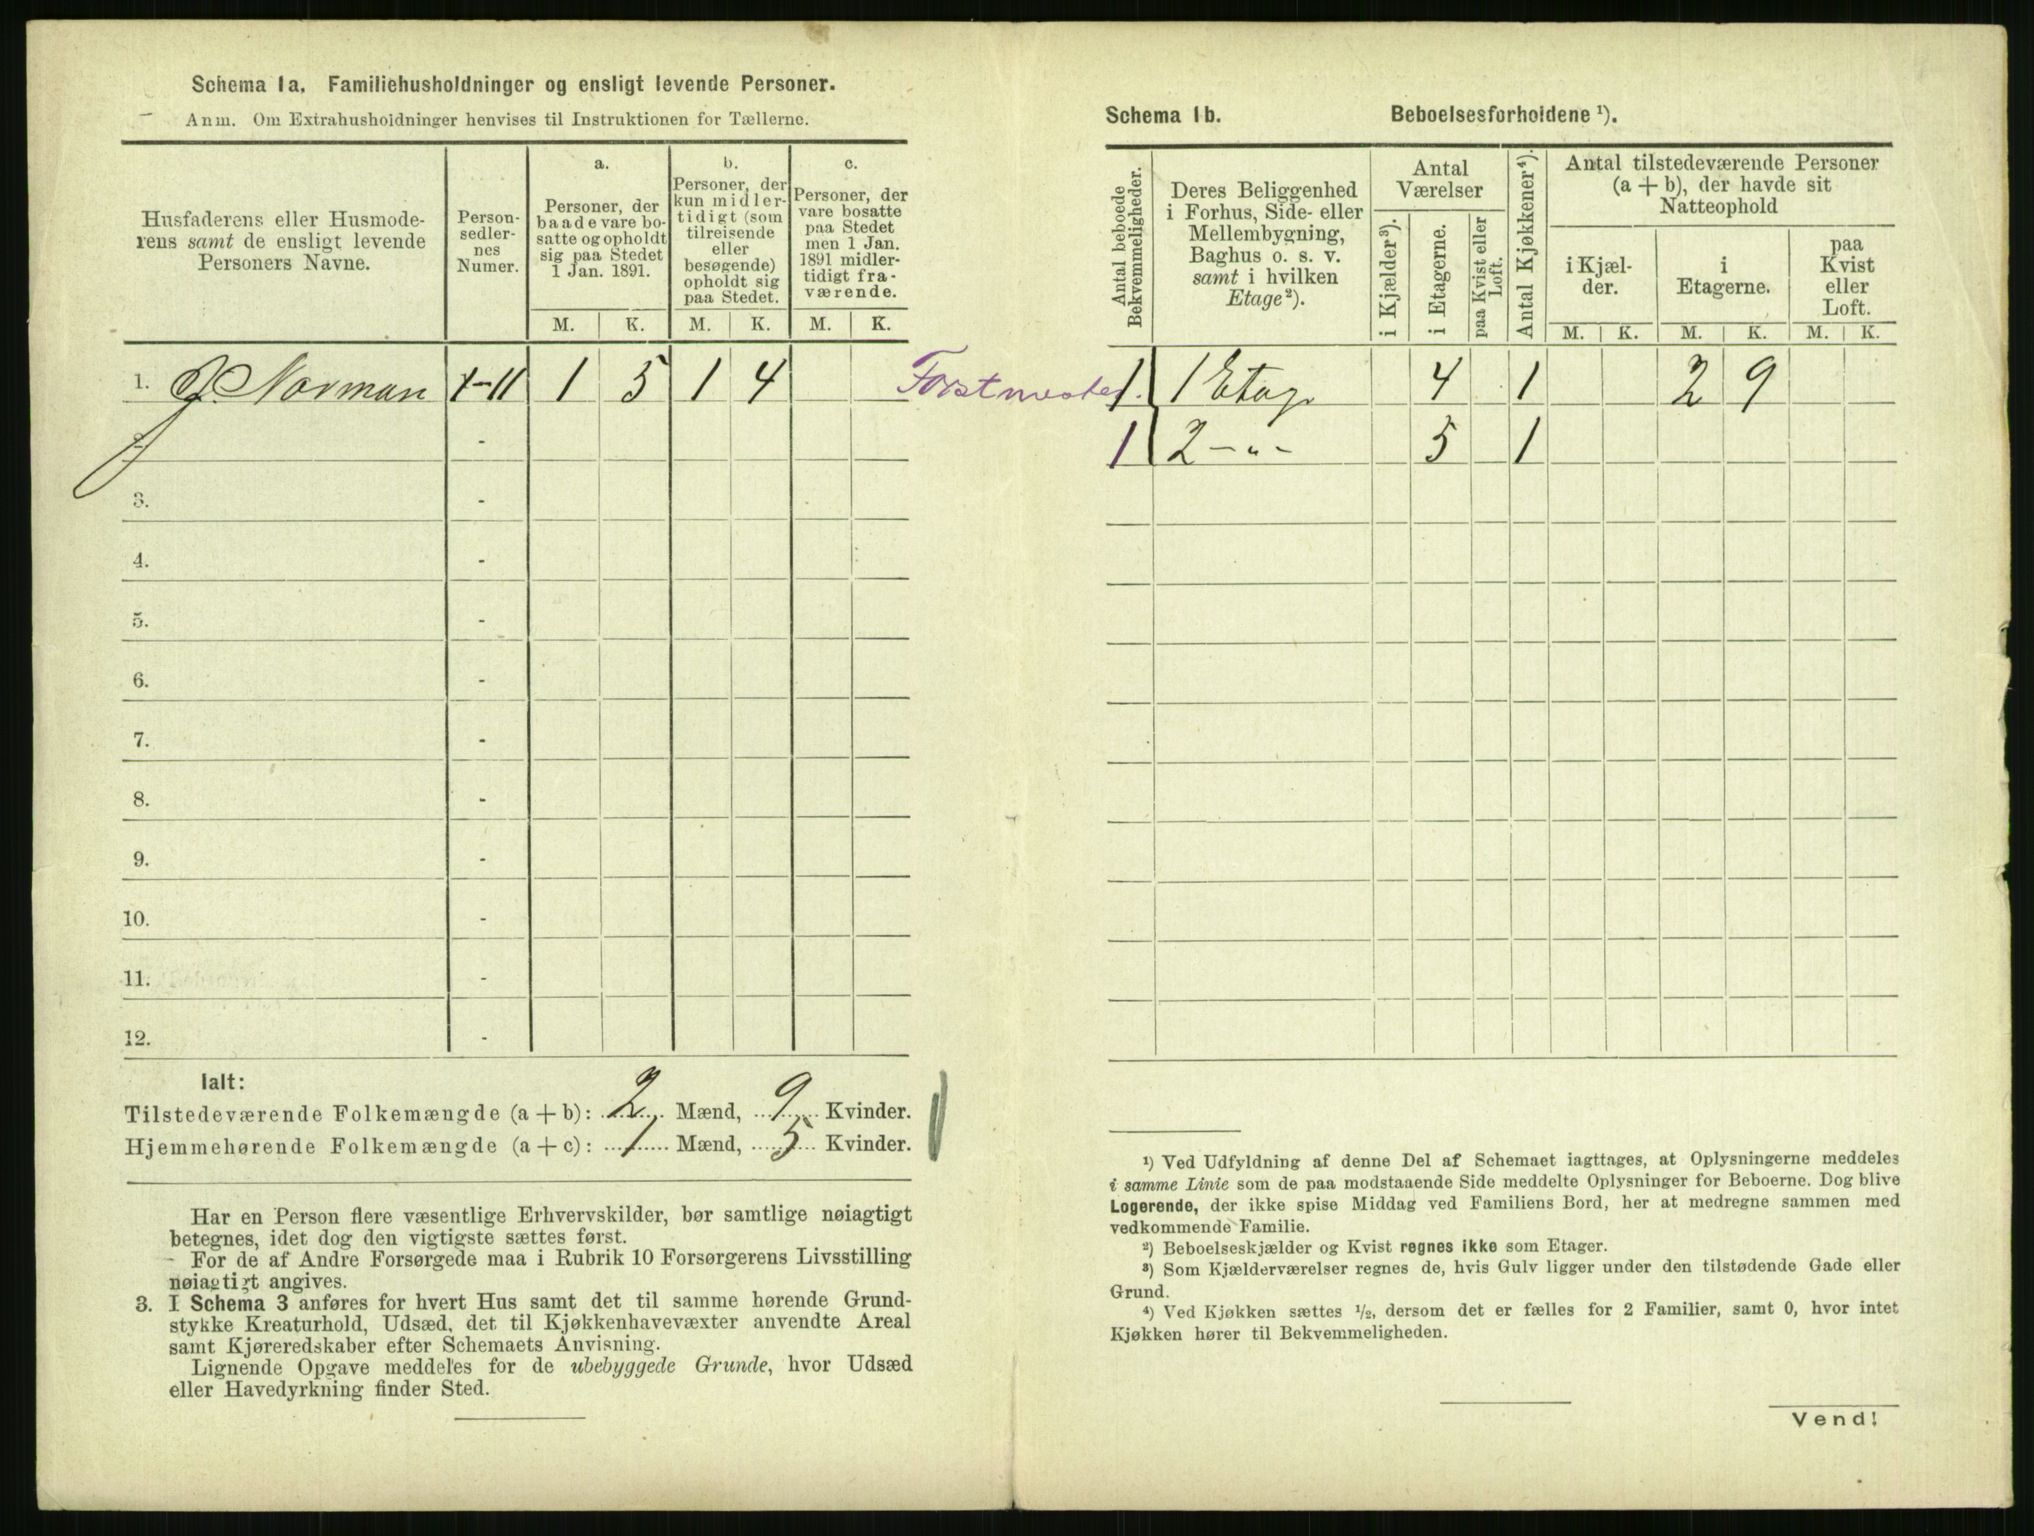 Schema 1a. Familiehusholdninger og ensligt levende Personer.
Anm. Om Extrahusholdninger henvises til Instruktionen for Tællerne.
Husfaderens eller Husmode-
rens samt de ensligt levende
Personers Navne.
Person-
sedler-
nes
Numer.
a.
Personer, der
baade vare bo-
satte og opholdt
sig paa Stedet
1 Jan. 1891.
b.
Personer, der
kun midler-
tidigt (som
tilreisende
eller
besøgende)
opholdt sig
paa Stedet.
c.
Personer, der
vare bosatte
paa Stedet
men 1 Jan.
1891 midler-
tidigt fra-
værende.
M. K. M. K. M. K.
1. J. Norman 1-11 1 5 1 4 Forstmester
2. -
3. -
4. -
5. -
6. -
7. -
8. -
9. -
10. -
11. -
12. -
Ialt:
Tilstedeværende Folkemængde (a + b): 2 Mænd, 9 Kvinder.
Hjemmehørende Folkemængde (a + c): 1 Mænd, 5 Kvinder.
Har en Person flere væsentlige Erhvervskilder, bør samtlige nøiagtigt
betegnes, idet dog den vigtigste sættes først.
- For de af Andre Forsørgede maa i Rubrik 10 Forsørgerens Livsstilling
nøiagtigt angives.
3. I Schema 3 anføres for hvert Hus samt det til samme hørende Grund-
stykke Kreaturhold, Udsæd, det til Kjøkkenhavevæxter anvendte Areal
samt Kjøreredskaber efter Schemaets Anvisning.
Lignende Opgave meddeles for de ubebyggede Grunde, hvor Udsæd
eller Havedyrkning finder Sted.
Schema 1b. Beboelsesforholdene ¹).
Antal beboede
Bekvemmeligheder.
Deres Beliggenhed
i Forhus, Side- eller
Mellembygning,
Baghus o. s. v.
samt i hvilken
Etage²).
Antal
Værelser
i Kjælder³).
i Etagerne.
paa Kvist eller
Loft.
Antal Kjøkkener⁴).
Antal tilstedeværende Personer
(a + b), der havde sit
Natteophold
i Kjæl-
der.
i
Etagerne.
paa
Kvist
eller
Loft.
M. K. M. K. M. K.
1 1 Etage 4 1 2 9
1 2 - " - 5 1
¹) Ved Udfyldning af denne Del af Schemaet iagttages, at Oplysningerne meddeles
i samme Linie som de paa modstaaende Side meddelte Oplysninger for Beboerne. Dog blive
Logerende, der ikke spise Middag ved Familiens Bord, her at medregne sammen med
vedkommende Familie.
²) Beboelseskjælder og Kvist regnes ikke som Etager.
³) Som Kjælderværelser regnes de, hvis Gulv ligger under den tilstødende Gade eller
Grund.
⁴) Ved Kjøkken sættes ½, dersom det er fælles for 2 Familier, samt 0, hvor intet
Kjøkken hører til Bekvemmeligheden.
Vend!